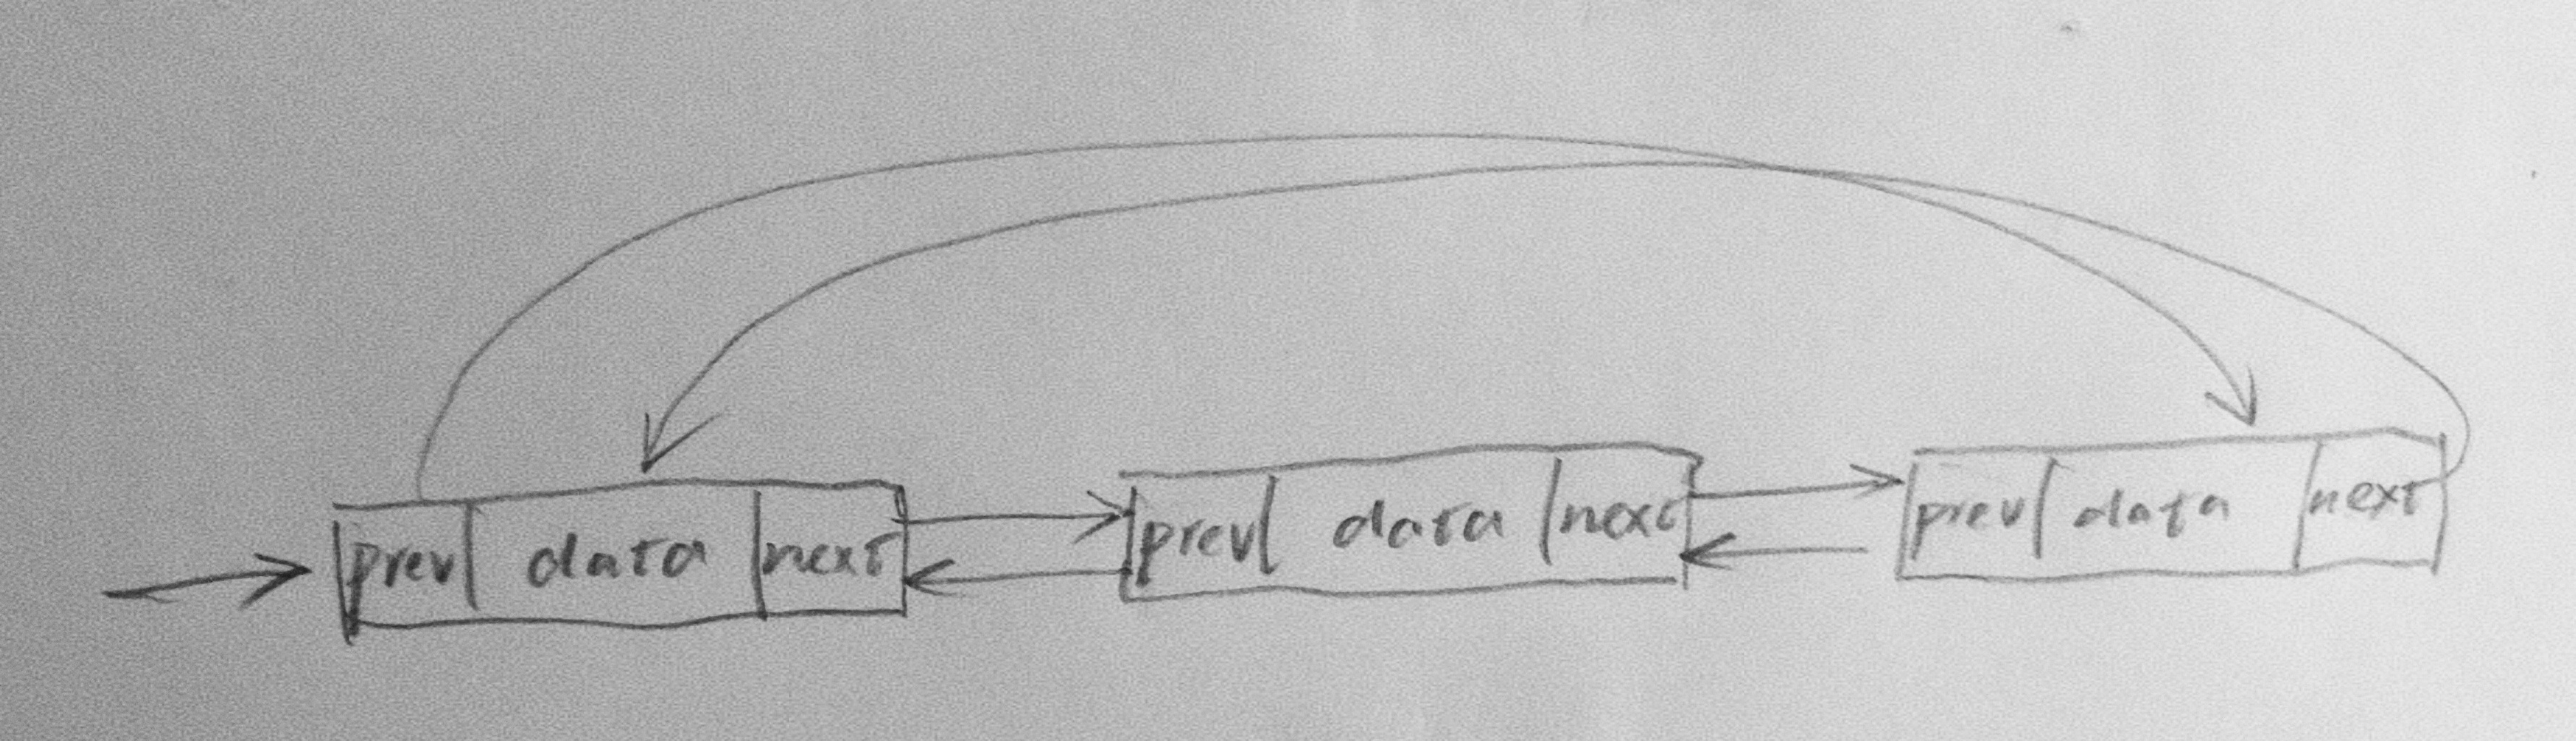 prev data next prev data next prev data next